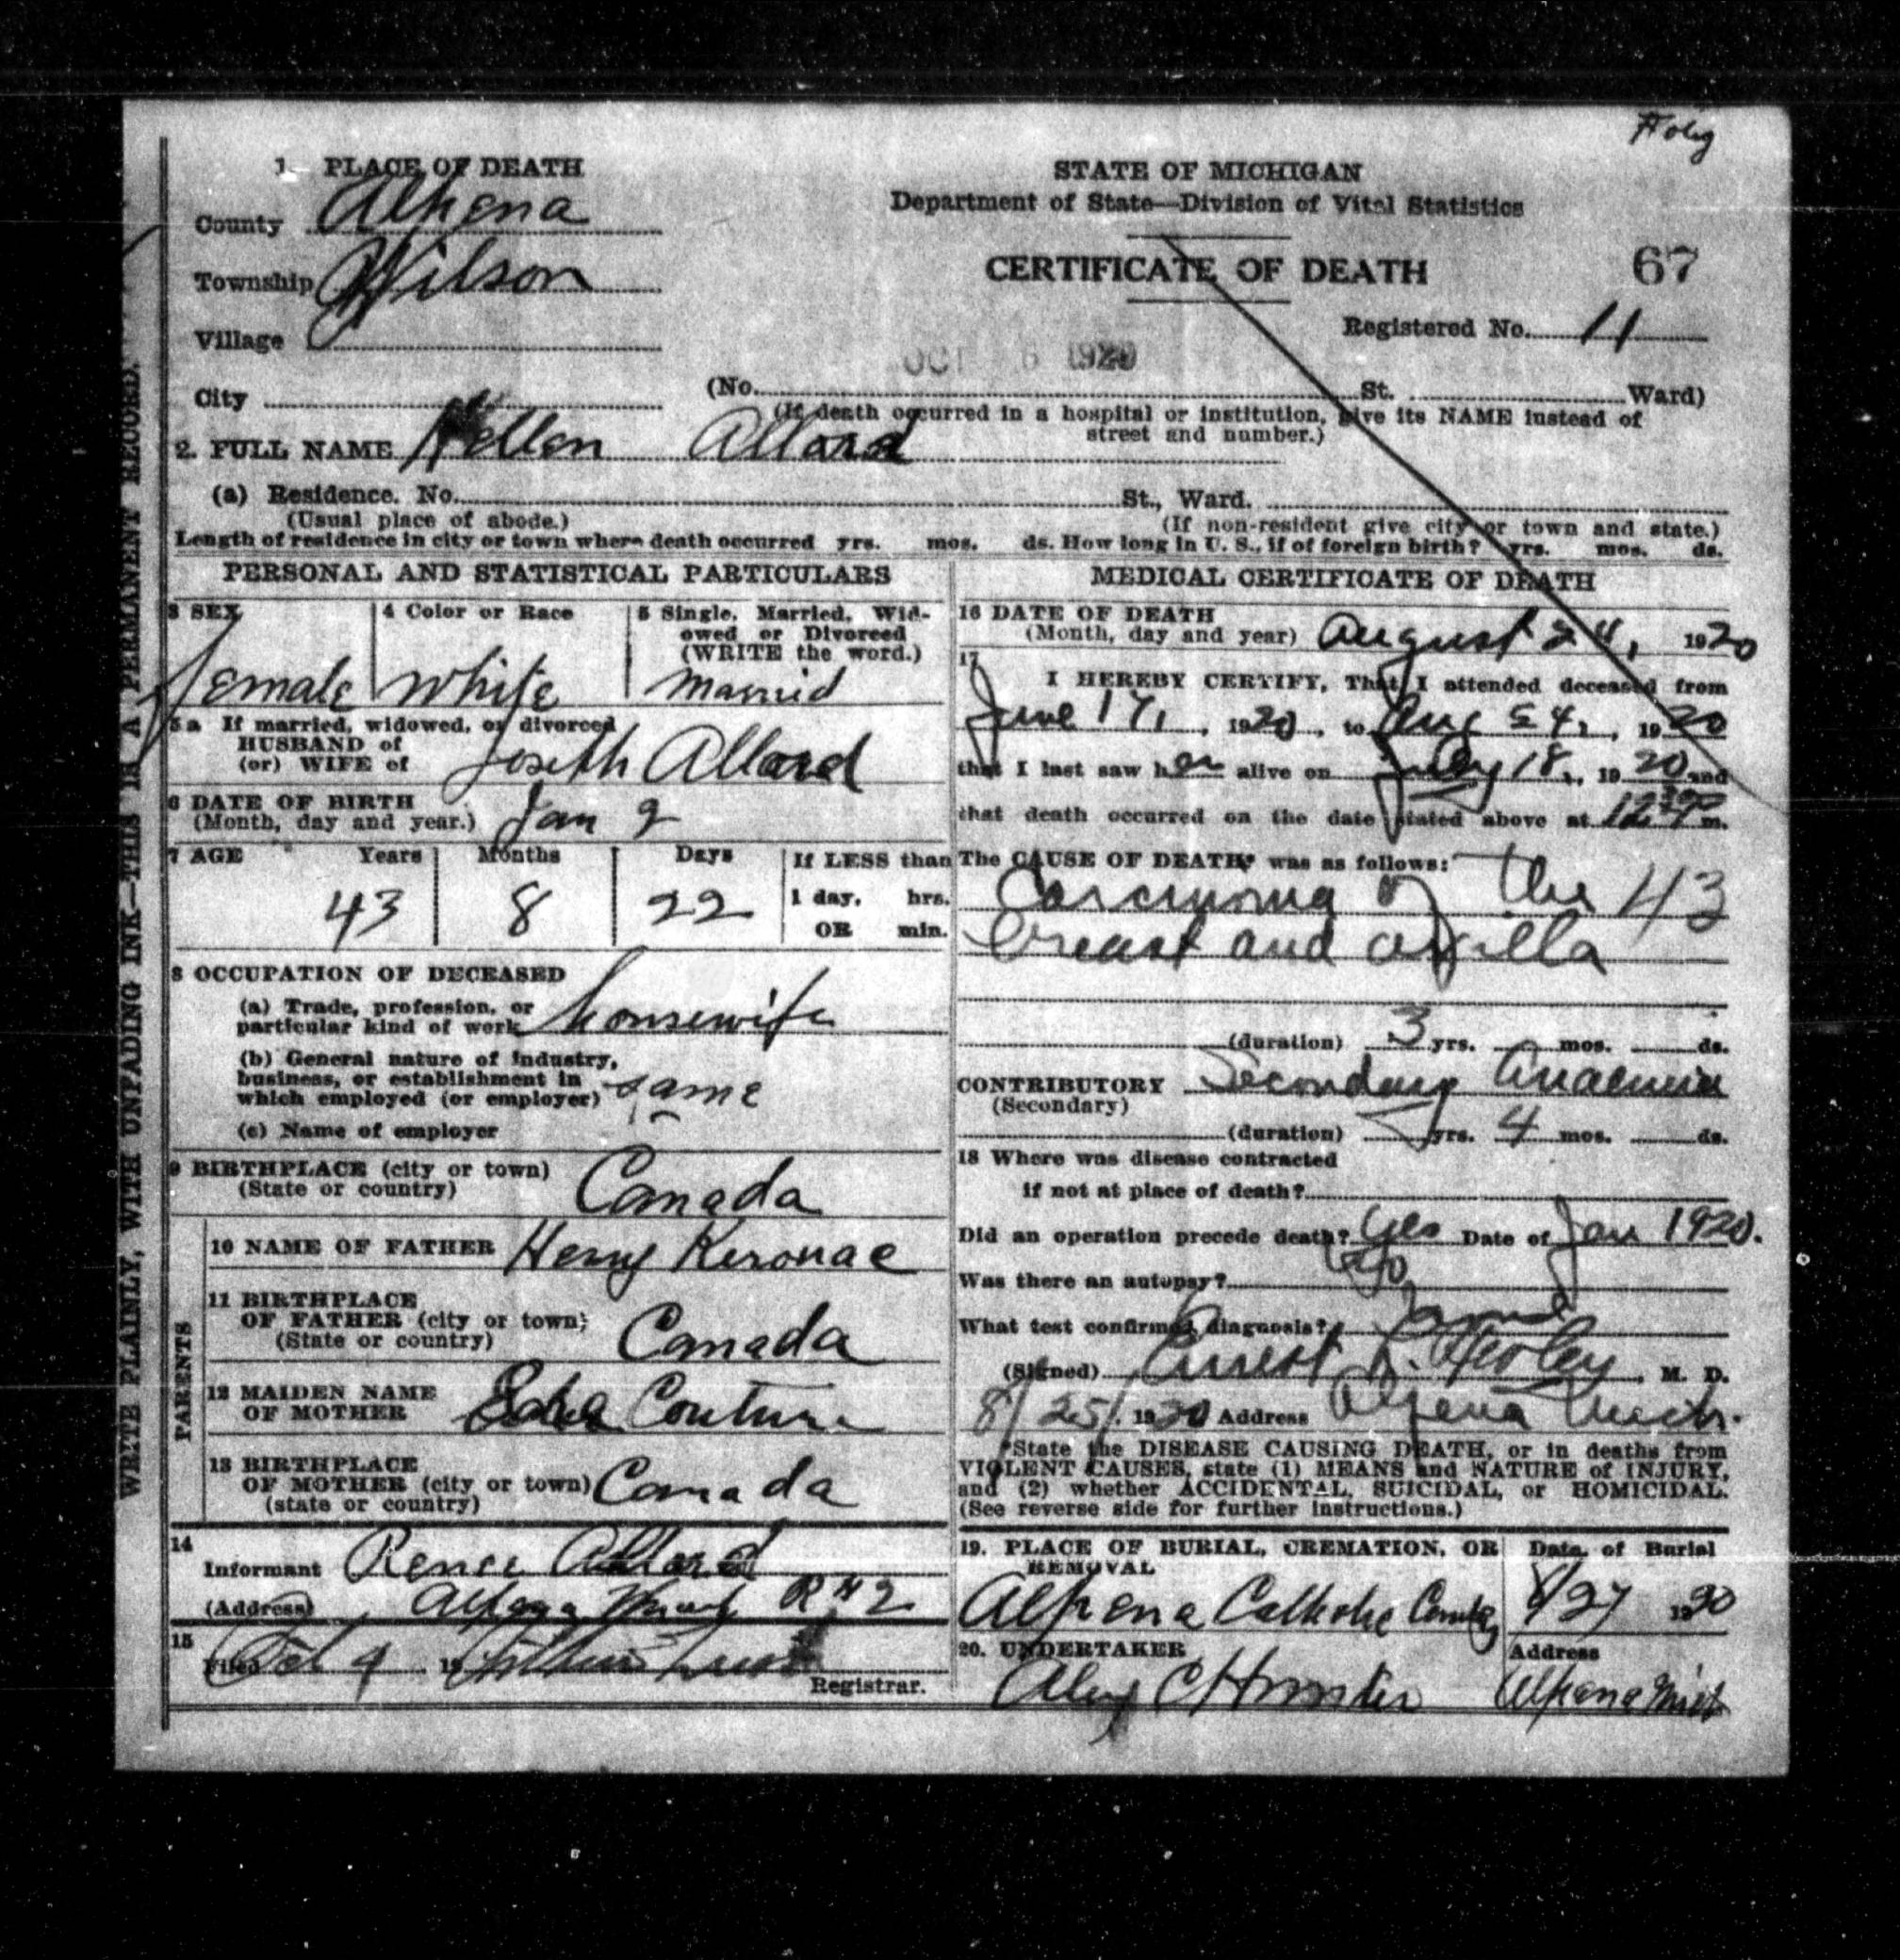 1. PLACE OF DEATH
County Alpena
Township Wilson
Village
City
STATE OF MICHIGAN
Department of State—Division of Vital Statistics
CERTIFICATE OF DEATH
67
Registered No. 11
OCT 6 1920
(No. St. Ward)
(If death occurred in a hospital or institution, give its NAME instead of
street and number.)
2. FULL NAME Hellen Allard
(a) Residence. No. St., Ward.
(Usual place of abode.) (If non-resident give city or town and state.)
Length of residence in city or town where death occurred yrs. mos. ds. How long in U. S., if of foreign birth? yrs. mos. ds.
PERSONAL AND STATISTICAL PARTICULARS
3 SEX 4 Color or Race 5 Single, Married, Wid-
owed or Divorced
(WRITE the word.)
female white married
5a If married, widowed, or divorced
HUSBAND of
(or) WIFE of Joseph Allard
6 DATE OF BIRTH
(Month, day and year.) Jan 2
7 AGE Years Months Days If LESS than
1 day, hrs.
OR min.
43 8 22
8 OCCUPATION OF DECEASED
(a) Trade, profession, or
particular kind of work housewife
(b) General nature of industry,
business, or establishment in
which employed (or employer) same
(c) Name of employer
9 BIRTHPLACE (city or town)
(State or country) Canada
PARENTS
10 NAME OF FATHER Henry Kerouac
11 BIRTHPLACE
OF FATHER (city or town)
(State or country) Canada
12 MAIDEN NAME
OF MOTHER Couture
13 BIRTHPLACE
OF MOTHER (city or town) Canada
(state or country)
14
Informant Allard
(Address) Alpena Mich R # 2
15
Filed Oct 4 19
Registrar.
MEDICAL CERTIFICATE OF DEATH
16 DATE OF DEATH
(Month, day and year) August 24, 1920
17
I HEREBY CERTIFY, That I attended deceased from
June 17, 1920, to Aug 24, 1920
that I last saw her alive on July 18, 1920 and
that death occurred on the date stated above at 12 30 P m.
The CAUSE OF DEATH* was as follows:
Carcinoma of the 43
breast and axilla
(duration) 3 yrs. mos. ds.
CONTRIBUTORY Secondary Anaemia
(Secondary)
(duration) yrs. 4 mos. ds.
18 Where was disease contracted
if not at place of death?
Did an operation precede death? Yes Date of Jan 1920.
Was there an autopsy? No
What test confirmed diagnosis?
(Signed) M. D.
8/25/. 1920 Address Alpena Mich.
*State the DISEASE CAUSING DEATH, or in deaths from
VIOLENT CAUSES, state (1) MEANS and NATURE of INJURY,
and (2) whether ACCIDENTAL, SUICIDAL, or HOMICIDAL.
(See reverse side for further instructions.)
19. PLACE OF BURIAL, CREMATION, OR
REMOVAL
Date of Burial
Alpena Catholic 8/27 1920
20. UNDERTAKER Address
Alpena Mich
WRITE PLAINLY, WITH UNFADING INK—THIS IS A PERMANENT RECORD.